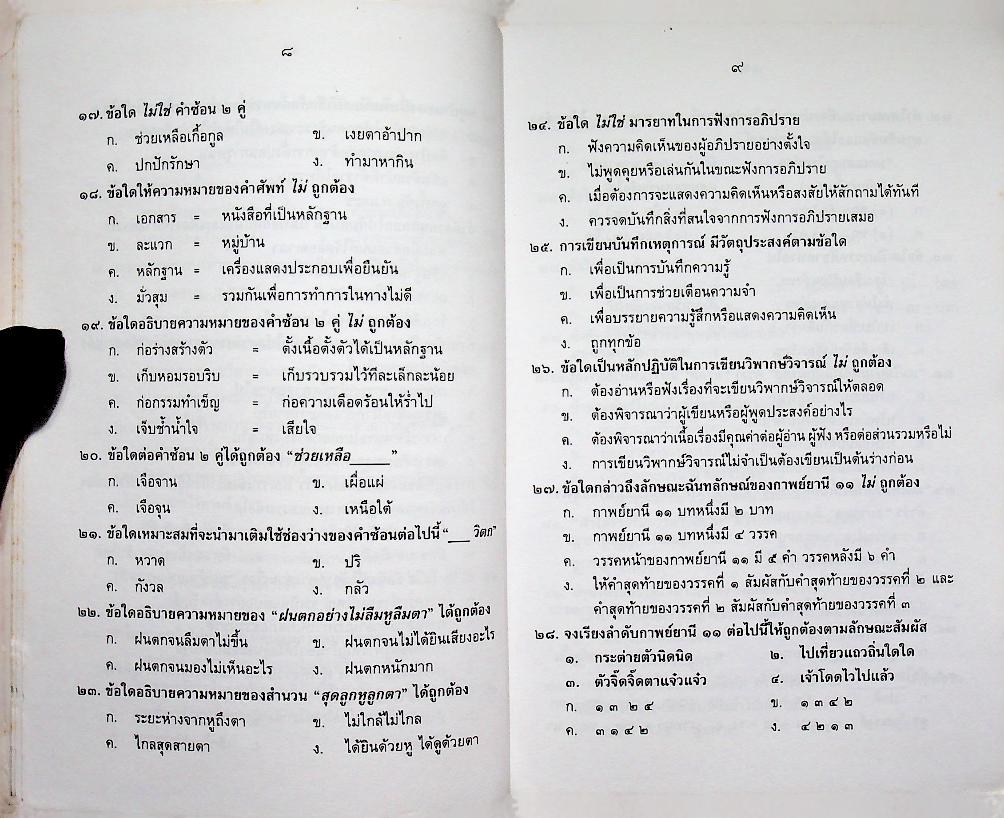 ๘
๑๗. ข้อใด ไม่ใช่ คำซ้อน ๒ คู่
ก. ช่วยเหลือเกื้อกูล ข. เงยตาอ้าปาก
ค. ปกปักรักษา ง. ทำมาหากิน
๑๘. ข้อใดให้ความหมายของคำศัพท์ ไม่ ถูกต้อง
ก. เอกสาร = หนังสือที่เป็นหลักฐาน
ข. ละแวก = หมู่บ้าน
ค. หลักฐาน = เครื่องแสดงประกอบเพื่อยืนยัน
ง. มั่วสุม = รวมกันเพื่อการทำการในทางไม่ดี
๑๙. ข้อใดอธิบายความหมายของคำซ้อน ๒ คู่ ไม่ ถูกต้อง
ก. ก่อร่างสร้างตัว = ตั้งเนื้อตั้งตัวได้เป็นหลักฐาน
ข. เก็บหอมรอบริบ = เก็บรวบรวมไว้ทีละเล็กละน้อย
ค. ก่อกรรมทำเข็ญ = ก่อความเดือดร้อนให้ร่ำไป
ง. เจ็บช้ำน้ำใจ = เสียใจ
๒๐. ข้อใดต่อคำซ้อน ๒ คู่ได้ถูกต้อง “ช่วยเหลือ_____”
ก. เจือจาน ข. เผื่อแผ่
ค. เจือจุน ง. เหนือใต้
๒๑. ข้อใดเหมาะสมที่จะนำมาเติมใช้ช่องว่างของคำซ้อนต่อไปนี้ “___ วิตก”
ก. หวาด ข. ปริ
ค. กังวล ง. กลัว
๒๒. ข้อใดอธิบายความหมายของ “ฝนตกอย่างไม่ลืมหูลืมตา” ได้ถูกต้อง
ก. ฝนตกจนลืมตาไม่ขึ้น ข. ฝนตกจนไม่ได้ยินเสียงอะไร
ค. ฝนตกจนมองไม่เห็นอะไร ง. ฝนตกหนักมาก
๒๓. ข้อใดอธิบายความหมายของสำนวน “สุดลูกหูลูกตา” ได้ถูกต้อง
ก. ระยะห่างจากหูถึงตา ข. ไม่ใกล้ไม่ไกล
ค. ไกลสุดสายตา ง. ได้ยินด้วยหู ได้ดูด้วยตา
๙
๒๔. ข้อใด ไม่ใช่ มารยาทในการฟังการอภิปราย
ก. ฟังความคิดเห็นของผู้อภิปรายอย่างตั้งใจ
ข. ไม่พูดคุยหรือเล่นกันในขณะฟังการอภิปราย
ค. เมื่อต้องการจะแสดงความคิดเห็นหรือสงสัยให้สักถามได้ทันที
ง. ควรจดบันทึกสิ่งที่สนใจจากการฟังการอภิปรายเสมอ
๒๕. การเขียนบันทึกเหตุการณ์ มีวัตถุประสงค์ตามข้อใด
ก. เพื่อเป็นการบันทึกความรู้
ข. เพื่อเป็นการช่วยเตือนความจำ
ค. เพื่อบรรยายความรู้สึกหรือแสดงความคิดเห็น
ง. ถูกทุกข้อ
๒๖. ข้อใดเป็นหลักปฏิบัติในการเขียนวิพากษ์วิจารณ์ ไม่ ถูกต้อง
ก. ต้องอ่านหรือฟังเรื่องที่จะเขียนวิพากษ์วิจารณ์ให้ตลอด
ข. ต้องพิจารณาว่าผู้เขียนหรือผู้พูดประสงค์อย่างไร
ค. ต้องพิจารณาว่าเนื้อเรื่องมีคุณค่าต่อผู้อ่าน ผู้ฟัง หรือต่อส่วนรวมหรือไม่
ง. การเขียนวิพากษ์วิจารณ์ไม่จำเป็นต้องเขียนเป็นต้นร่างก่อน
๒๗. ข้อใดกล่าวถึงลักษณะฉันทลักษณ์ของกาพย์ยานี ๑๑ ไม่ ถูกต้อง
ก. กาพย์ยานี ๑๑ บทหนึ่งมี ๒ บาท
ข. กาพย์ยานี ๑๑ บทหนึ่งมี ๔ วรรค
ค. วรรคหน้าของกาพย์ยานี ๑๑ มี ๕ คำ วรรคหลังมี ๖ คำ
ง. ให้คำสุดท้ายของวรรคที่ ๑ สัมผัสกับคำสุดท้ายของวรรคที่ ๒ และ
คำสุดท้ายของวรรคที่ ๒ สัมผัสกับคำสุดท้ายของวรรคที่ ๓
๒๘. จงเรียงลำดับกาพย์ยานี ๑๑ ต่อไปนี้ให้ถูกต้องตามลักษณะสัมผัส
๑. กระต่ายตัวนิดนิด ๒. ไปเที่ยวแถวถิ่นใดใด
๓. ตัวจี๊ดจี๊ดตาแจ๋วแจ๋ว ๔. เจ้าโดดไวไปแล้ว
ก. ๑ ๓ ๒ ๕ ข. ๑ ๓ ๔ ๒
ค. ๓ ๑ ๔ ๒ ง. ๔ ๒ ๑ ๓